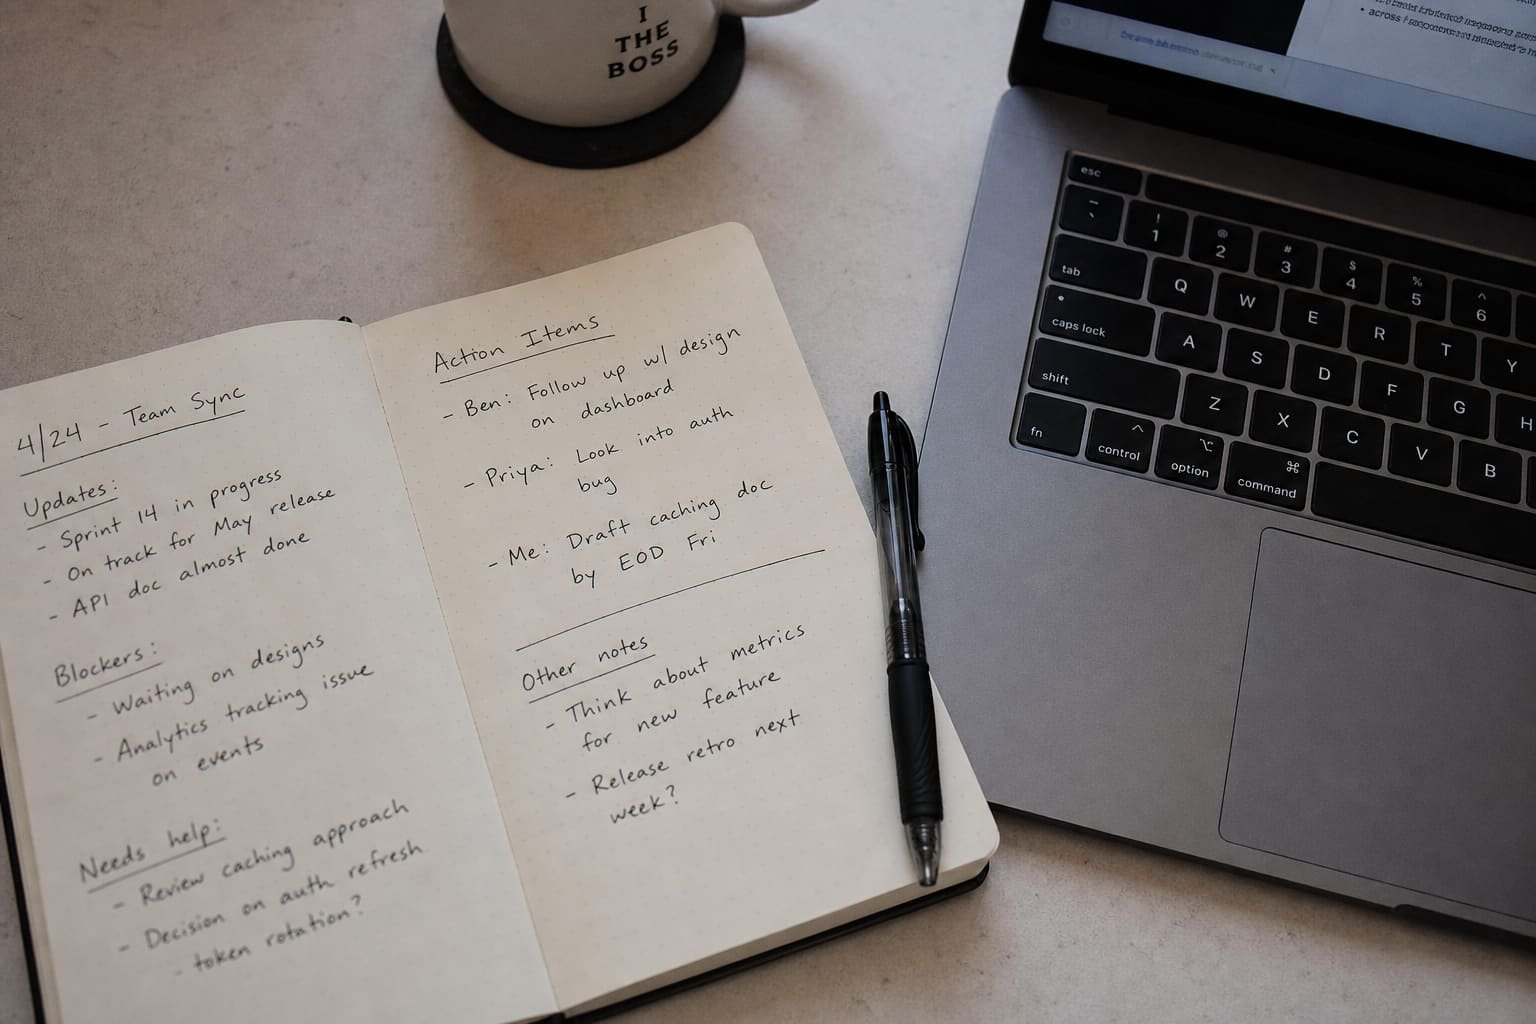 I
THE
BOSS
4/24 - Team Sync
Updates:
- Sprint 14 in progress
- On track for May release
- API doc almost done
Blockers:
- Waiting on designs
- Analytics tracking issue
on events
Needs help:
- Review caching approach
- Decision on auth refresh
- token rotation?
Action Items
- Ben: Follow up w/ design
on dashboard
- Priya: Look into auth
bug
- Me: Draft caching doc
by EOD Fri
Other notes
- Think about metrics
for new feature
- Release retro next
week?
• across
esc
~ ` ! 1 @ 2 # 3 $ 4 % 5 ^ 6
tab Q W E R T Y
caps lock A S D F G H
shift Z X C V B
fn control option command